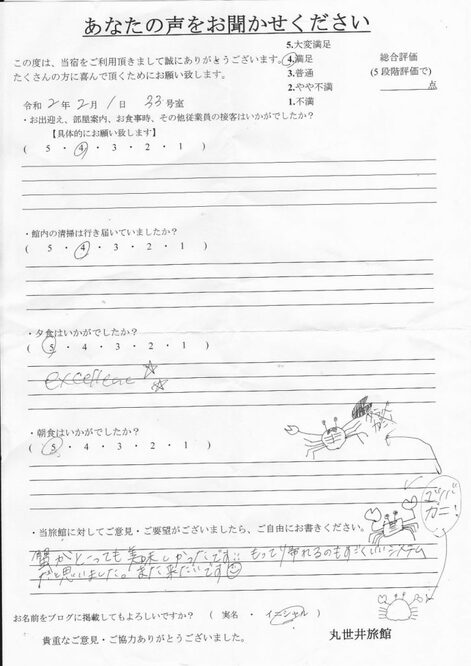 あなたの声をお聞かせください
この度は、当宿をご利用頂きまして誠にありがとうございます。
たくさんの方に喜んで頂くためにお願い致します。
5.大変満足
4.満足
3.普通
2.やや不満
1.不満
総合評価
(5段階評価で)
点
令和 2年 2月 1日 33号室
・お出迎え、部屋案内、お食事時、その他従業員の接客はいかがでしたか?
【具体的にお願い致します】
( 5 ・ 4 ・ 3 ・ 2 ・ 1 )
・館内の清掃は行き届いていましたか?
( 5 ・ 4 ・ 3 ・ 2 ・ 1 )
・夕食はいかがでしたか?
( 5 ・ 4 ・ 3 ・ 2 ・ 1 )
excellent ☆☆
・朝食はいかがでしたか?
( 5 ・ 4 ・ 3 ・ 2 ・ 1 )
・当旅館に対してご意見・ご要望がございましたら、ご自由にお書きください。
蟹がとっても美味しかったです!! もって帰れるのもすごくいいシステム
だと思いました。また来たいです
カニ!
お名前をブログに掲載してもよろしいですか? ( 実名 ・ イニシャル )
貴重なご意見・ご協力ありがとうございました。
丸世井旅館